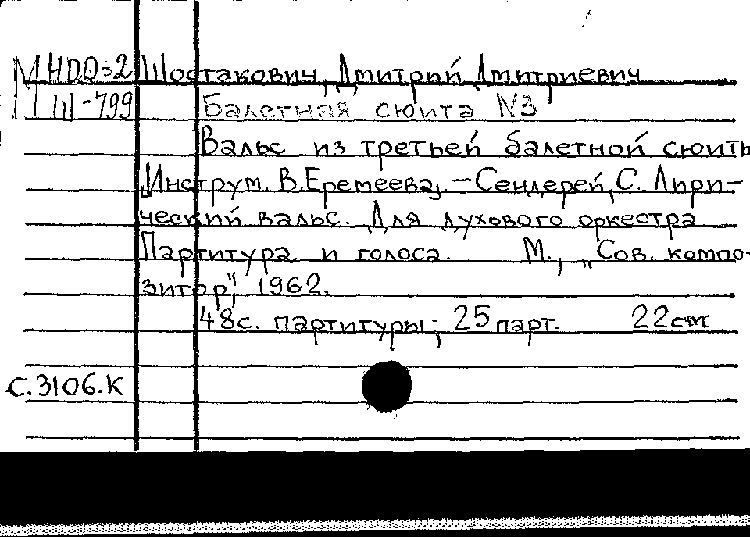 МНДО-2 Шостакович, Дмитрий Дмитриевич
Ш-799 Балетная сюита N3
Вальс из третьей балетной сюиты
Инструм. В.Еремеева, - Сендерей, С. Лири-
ческий вальс. Для духового оркестра
Партитура и голоса. М., „Сов. компо-
зитор", 1962.
48с. партитуры; 25 парт. 22см
с.3106.к